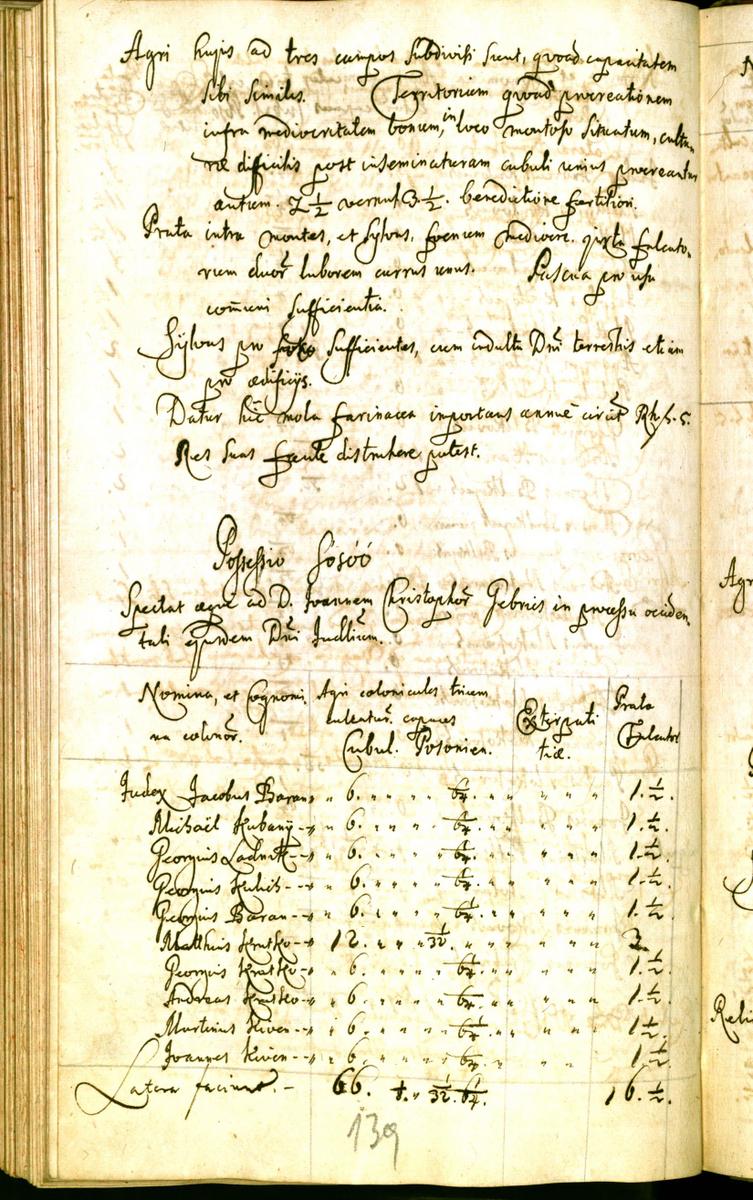 Agri hujus ad tres campos subdivisi sunt, quoad capacitatem
sibi similes. Territorium quoad procreationem
infra mediocritatem bonum, in loco montoso situatum, cultu
ræ difficilis post inseminaturam cubuli unius procreantur
autum. 2 1/2 vernal. 3 1/2. benedictione fertiliori.
Prata intra montes, et sylvas, foenum mediocre. juxta falcato,,
rum duor laborem currus unus. Pascua pro usu
com̄uni sufficientia.
Sylvas pro foco sufficientes, cum indultu Dñi terrestris etiam
pro ædificijs.
Datur hic mola farinacea importans annue circit Rh. f. 5.
Res suas facile distrahere potest.
Possessio Sósóó
Spectat æque ad D. Joannem Christophor in processu occiden,,
tali ejusdem Dñi Judlium.
Nomina, et Cognomi,
na colonor.
Agri colonicales tricem
culturæ capaces
Cubul. Posonien.
Extirpati
tiæ.
Prata
Falcator
Judex Jacobus Baran " 6. " " " " 1/64. " " " " " 1. 1/2.
Michaël Kubanÿ " 6. " " " " 1/64. " " " " " 1. 1/2.
Georgius Ladnik " 6. " " " " 1/64. " " " " " 1. 1/2.
Georgius Kulich " 6. " " " " 1/64. " " " " " 1. 1/2.
Georgius Baran " 6. " " " " 1/64. " " " " " 1. 1/2.
Matthias Kratko 12. " " " 1/32. " " " " " 3.
Georgius Kratko " 6. " " " " 1/64. " " " " " 1. 1/2.
Andreas Kratko " 6. " " " " 1/64. " " " " " 1. 1/2.
Martinus Kiven " 6. " " " " 1/64. " " " " " 1. 1/2.
Joannes Kiven " 6. " " " " 1/64. " " " " 1. 1/2.
Latera faciunt. - 66. 1/32. 1/64. 16. 1/2.
139